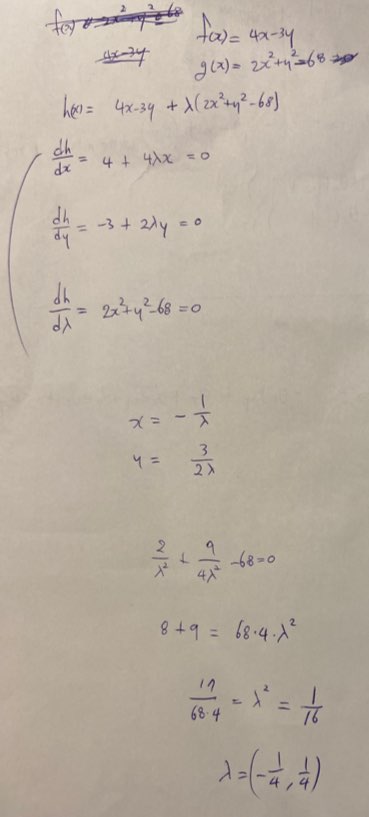 f(x) = 4x-3y
4x-3y
g(x) = 2x²+y²-68
h(x) = 4x-3y + λ(2x²+y²-68)
dh/dx = 4 + 4λx = 0
dh/dy = -3 + 2λy = 0
dh/dλ = 2x²+y²-68 = 0
x = - 1/λ
y = 3/2λ
2/λ² + 9/4λ² -68=0
8+9 = 68·4·λ²
17/68·4 = λ² = 1/16
λ = (-1/4, 1/4)